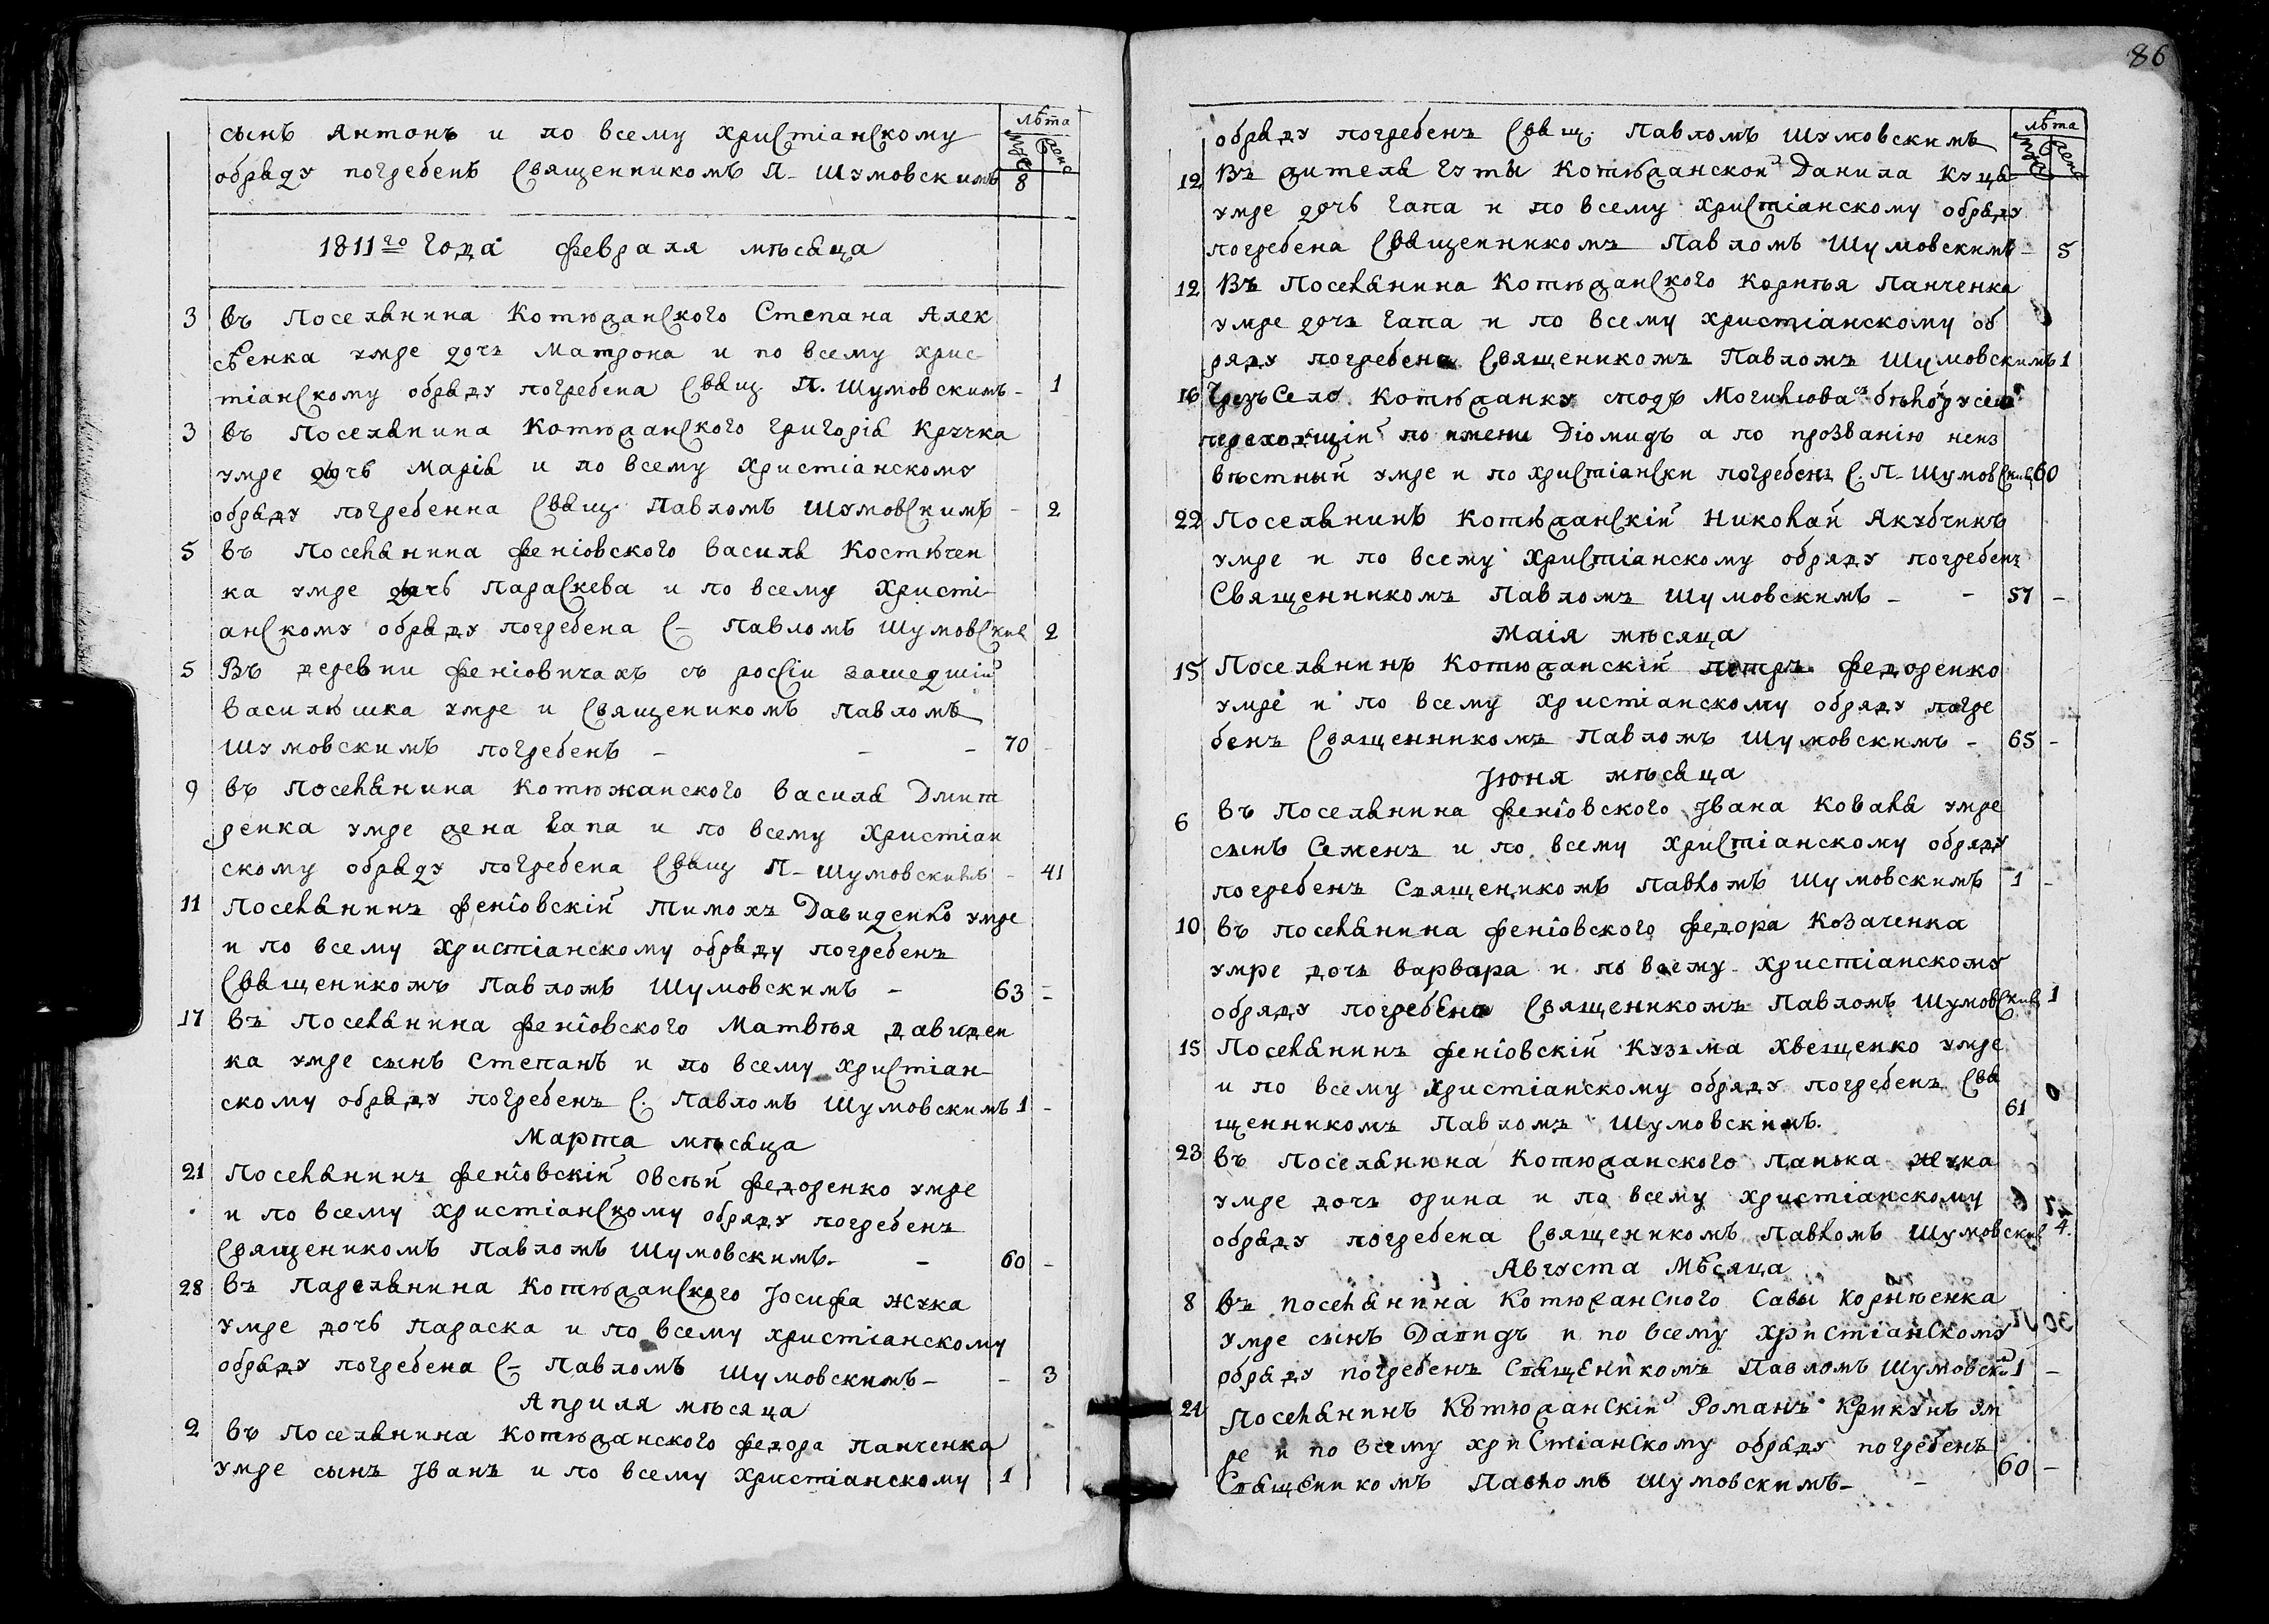 лѣта
сынъ Антонъ и по всему христіанскому
обряду погребенъ Священникомъ П- Шумовскимъ 8
1811го Года февраля мѣсяца
3 въ Поселянина Котюжанского Степана Алек
сѣенка умре дочь Матрона и по всему хрис-
тіанскому обряду погребена Свящ П. Шумовскимъ - 1
3 въ Поселянина Котюжанского Григорія Кручка
умре дочь Марія и по всему христіанскому
обряду погребенна Свящ Павломъ Шумовскимъ - 2
5 въ Поселянина феніовского Василя Костючен
ка умре дочь Параскева и по всему христі-
анскому обряду погребена С- Павломъ Шумовским 2
5 Въ деревни феніовичахъ съ россіи зашедшій
Василюшка умре и Священикомъ Павломъ
Шумовскимъ погребенъ - - - 70 -
9 въ Поселянина Котюжанского Василя Дмит
ренка умре жена Гапа и по всему христіан
скому обряду погребена Свящ П- Шумовскимъ - 41
11 Поселянинъ феніовскій Тимохъ Давиденко умре
и по всему христіанскому обряду погребенъ
Священикомъ Павломъ Шумовскимъ - 63 -
17 въ Поселянина феніовского Матвѣя Давиден
ка умре сынъ Степанъ и по всему христіан-
скому обряду погребенъ С. Павломъ Шумовскимъ 1 -
Марта мѣсяца
21 Поселянинъ феніовскій Овсѣй федоренко умре
и по всему христіанскому обряду погребенъ
Священикомъ Павломъ Шумовскимъ. - 60 -
28 въ Параселянина Котюжанского Іосифа Жука
умре дочь Параска и по всему христіанскому
обряду погребена С- Павломъ Шумовскимъ- - 3
Априля мѣсяца
2 въ Поселянина Котюжанского федора Панченка
умре сынъ Іванъ и по всему христіанскому 1
86
лѣта
обряду погребенъ Свящ. Павломъ Шумовскимъ
12 Въ жителя Гуты Котюжанской Данила Куца
умре дочь Гапа и по всему христіанскому обряду
погребена Священникомъ Павломъ Шумовскимъ - 5
12 Въ Поселянина Котюжанского Корнѣя Панченка
умре дочь Гапа и по всему христіанскому об
ряду погребена Священикомъ Павломъ Шумовскимъ 1
16 Чрезъ Село Котюжанку сподъ Могилюва бѣлорусіи
переходящій по имени Діомидъ а по прозванію неиз
вѣстный умре и по христіански погребенъ С. П- Шумовским 60
22 Поселянинъ Котюжанскій Николай Якубчинъ
умре и по всему христіанскому обряду погребенъ
Священникомъ Павломъ Шумовскимъ - - 57 -
Маія мѣсяца
15 Поселянинъ Котюжанскій Петръ федоренко
умре и по всему христіанскому обряду погре
бенъ Священникомъ Павломъ Шумовскимъ - 65 -
Іюня мѣсяца
6 въ Поселянина феніовского Івана Коваля умре
сынъ Семенъ и по всему христіанскому обряду
погребенъ Священикомъ Павломъ Шумовскимъ 1 -
10 въ поселянина феніовского федора Козаченка
умре дочь варвара и по всему христіанскому
обряду погребена Священикомъ Павломъ Шумовским 1
15 Поселянинъ феніовскій Кузьма Хвещенко умре
и по всему христіанскому обряду погребенъ Свя
щенникомъ Павломъ Шумовскимъ. 61
23 въ Поселянина Котюжанского Панька Жука
умре дочь орина и по всему христіанскому
обряду погребена Священикомъ Павломъ Шумовским 4.
Августа Мѣсяца
8 въ поселянина Котюжанского Савы Корнѣенка
умре сынъ Давидъ и по всему христіанскому
обряду погребенъ Священикомъ Павломъ Шумовски 1 -
21 Поселянинъ Котюжанскій Романъ Крикунъ ум
ре и по всему христіанскому обряду погребенъ
Священикомъ Павломъ Шумовскимъ- - 60 -